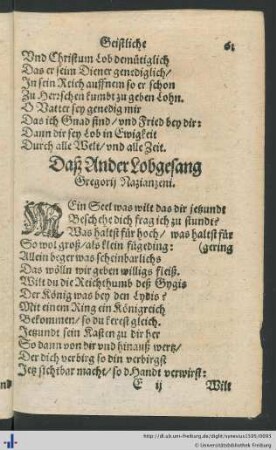 Geistliche 61
Vnd Christum Lob demütiglich
Das er seim Diener genediglich/
In sein Reich auffnem so er schon
Zu Herrschen kumbt zu geben Lohn.
O Vatter sey genedig mir
Das ich Gnad find/ vnd Fried bey dir:
Dann dir sey Lob in Ewigkeit
Durch alle Welt/ vnd alle Zeit.
Daß Ander Lobgesang
Gregorij Nazianzeni.
MEin Seel was wilt das dir jetzundt
Beschehe dich frag ich zu stundt?
Was haltst für hoch/ was haltst für
So wol groß/ als klein fügeding: (gering
Allein beger was scheinbarlichs
Das wölln wir geben willigs fleiß.
Wilt du die Reichthumb deß Gygis
Der König was bey den Lydis?
Mit einem Ring ein Königreich
Bekommen/ so du kerest gleich.
Jetzundt sein Kasten zu dir her
So dann von dir vnd hinauß wertz/
Der dich verbirg so din verbirgst
Jez sichtbar macht/ so dHandt verwirfst:
E ij Wilt
http://dl.ub.uni-freiburg.de/diglit/synesius1595/0093
© Universitätsbibliothek Freiburg